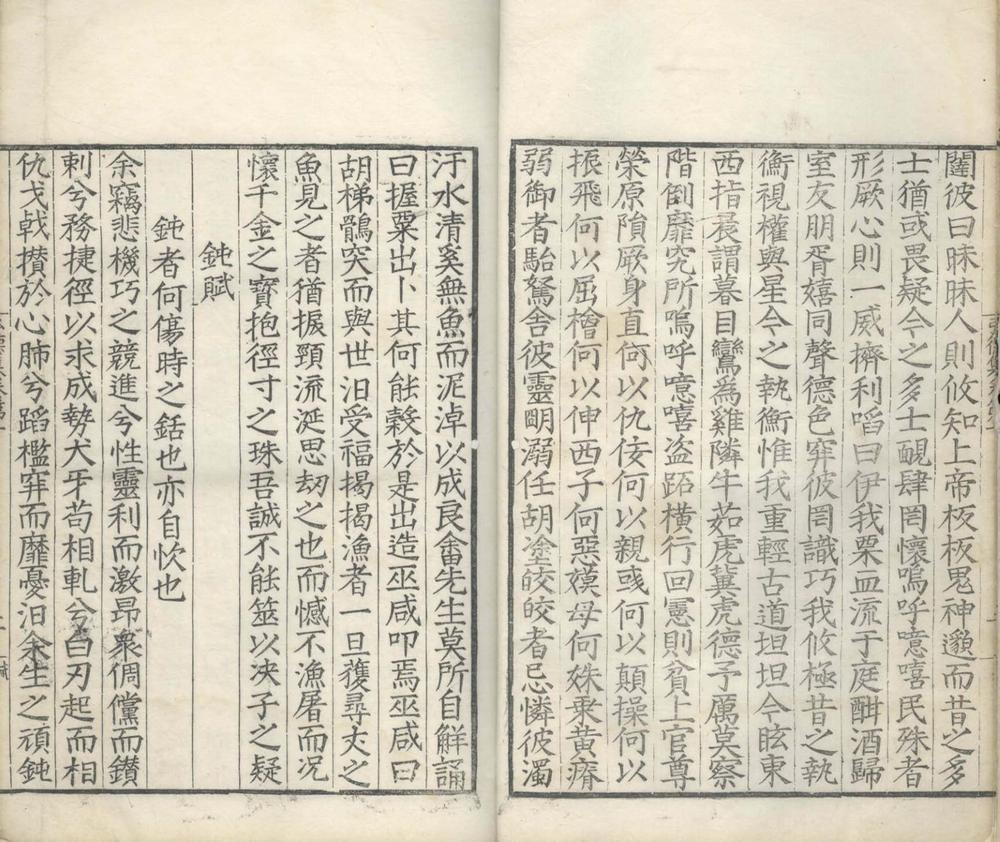 闥彼曰昧昧人則攸知上帝板板鬼神邈而昔之多
士猶或畏疑今之多士靦肆罔懷嗚呼噫嘻民殊者
形厥心則一威擠利啗曰伊我栗血流于庭酣酒歸
室友朋胥嬉同聲德色穽彼罔識巧我攸極昔之執
衡視權與星今之執衡惟我重輕古道坦坦今眩東
西指晨謂暮目鸞為雞隣牛茹虎冀虎德予厲莫察
階倒靡究所嗚呼噫嘻盜跖橫行回憲則貧上官尊
榮原隕厥身直何以仇佞何以親彧何以顛操何以
振飛何以屈檜何以伸西子何惡嫫母何姝乗黄瘠
弱御者駘駑舍彼靈朙溺任胡塗皎皎者忌憐彼濁
汙水清奚無魚而泥淖以成良畬先生莫所自觧誦
曰握粟出卜其何能穀於是出造巫咸叩焉巫咸曰
胡梯鶻突而與世汨受福揭揭漁者一旦獲尋丈之
魚見之者猶扼頸流涎思刧之也而憾不漁屠而况
懷千金之寳抱徑寸之珠吾誠不能筮以决子之疑
鈍賦
鈍者何傷時之銛也亦自忺也
余竊悲機巧之競進兮性靈利而激昂衆倜儻而鑚
剌兮務捷徑以求成勢犬牙苟相軋兮白刃起而相
仇戈戟攅於心肺兮蹈檻穽而靡憂汨余生之頑鈍